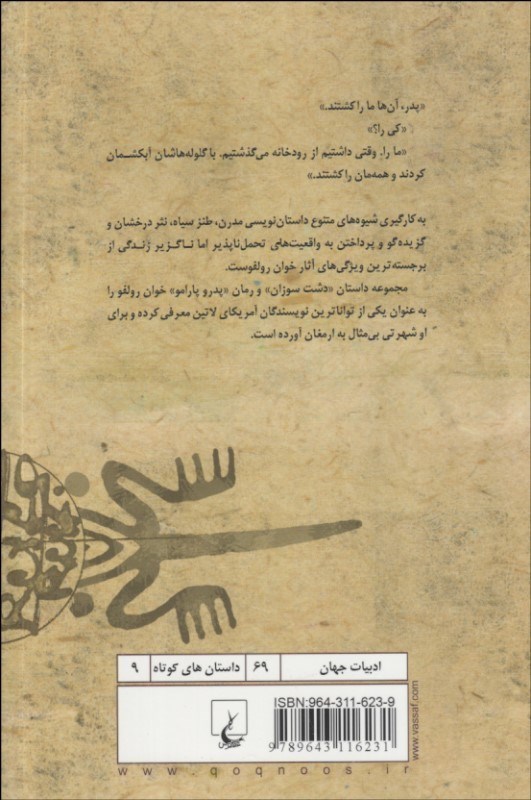 «پدر، آن‌ها ما را کشتند.»
«کی را؟»
«ما را. وقتی داشتیم از رودخانه می‌گذشتیم. با گلوله‌هاشان آبکشمان
کردند و همه‌مان را کشتند.»
به کارگیری شیوه‌های متنوع داستان‌نویسی مدرن، طنز سیاه، نثر درخشان و
گزیده‌گو و پرداختن به واقعیت‌های تحمل‌ناپذیر اما ناگزیر زندگی از
برجسته‌ترین ویژگی‌های آثار خوان رولفوست.
مجموعه داستان «دشت سوزان» و رمان «پدرو پارامو» خوان رولفو را
به عنوان یکی از تواناترین نویسندگان آمریکای لاتین معرفی کرده و برای
او شهرتی بی‌مثال به ارمغان آورده است.
ادبیات جهان ۶۹ داستان های کوتاه ۹
ISBN:964-311-623-9
9 789643 116231
www.vassaf.com
www.qoqnoos.ir